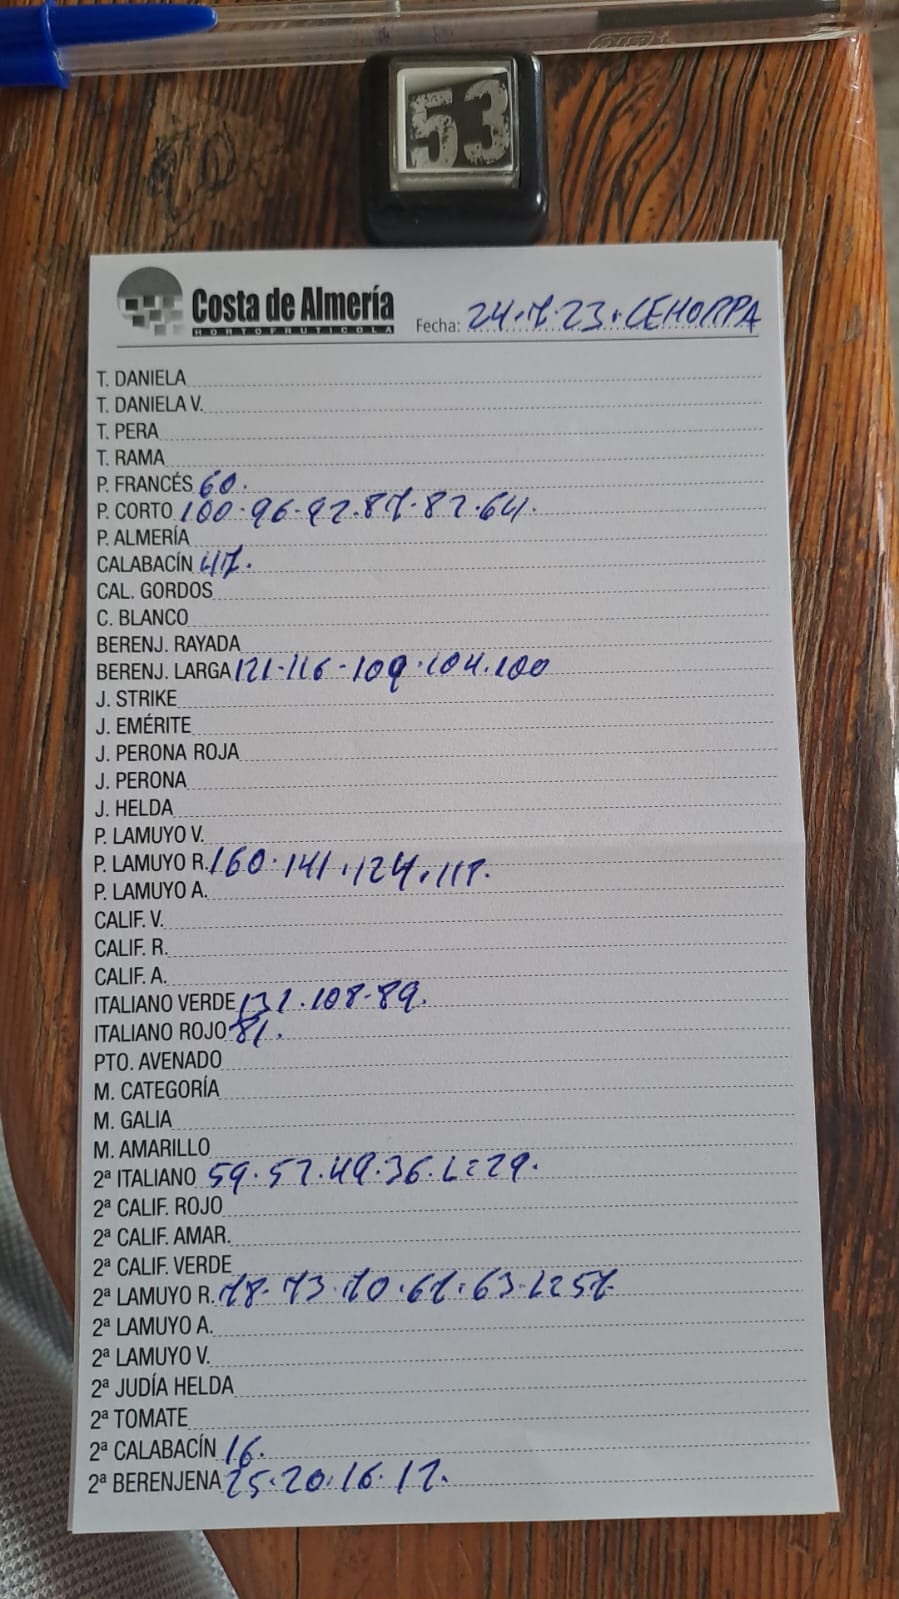 53
Costa de Almería
HORTOFRUTICOLA
Fecha: 24.7.23. CEHORPA
T. DANIELA
T. DANIELA V.
T. PERA
T. RAMA
P. FRANCÉS 60.
P. CORTO 100.96.92.87.82.64.
P. ALMERÍA
CALABACÍN 47.
CAL. GORDOS
C. BLANCO
BERENJ. RAYADA
BERENJ. LARGA 121-116-109.104.100
J. STRIKE
J. EMÉRITE
J. PERONA ROJA
J. PERONA
J. HELDA
P. LAMUYO V.
P. LAMUYO R. 160.141.124.118.
P. LAMUYO A.
CALIF. V.
CALIF. R.
CALIF. A.
ITALIANO VERDE 131.108.89.
ITALIANO ROJO 81.
PTO. AVENADO
M. CATEGORÍA
M. GALIA
M. AMARILLO
2ª ITALIANO 59.52.49.36.L=29.
2ª CALIF. ROJO
2ª CALIF. AMAR.
2ª CALIF. VERDE
2ª LAMUYO R. 78.73.70.67.63.L=57.
2ª LAMUYO A.
2ª LAMUYO V.
2ª JUDÍA HELDA
2ª TOMATE
2ª CALABACÍN 16.
2ª BERENJENA 25.20.16.12.